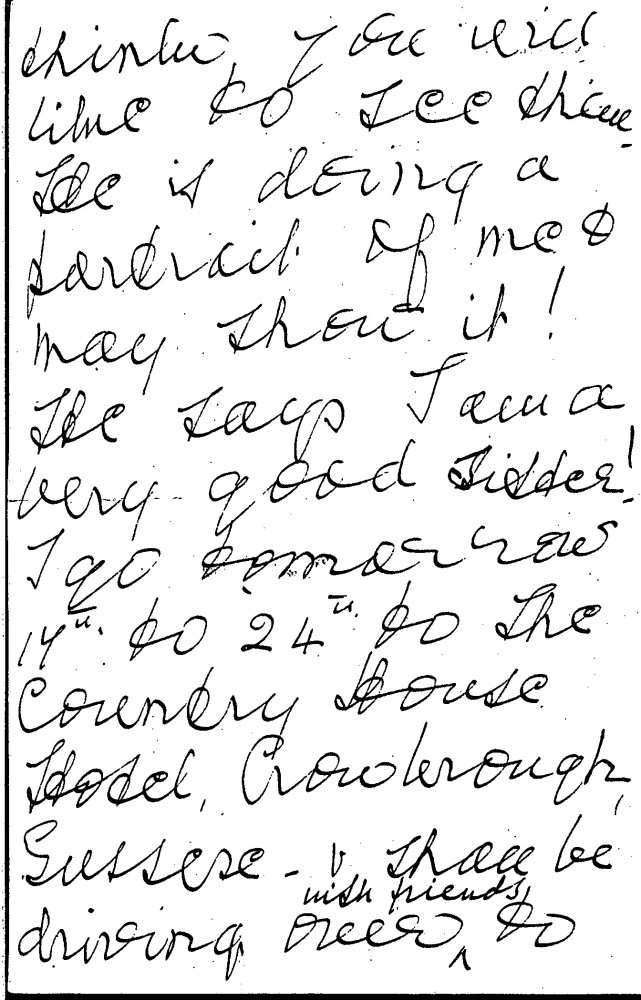 think, you will
like to see them.
He is doing a
portrait of me &
may show it!
He says I am a
very good Sitter!
I go tomorrow
14th. to 24th. to The
Country House
Hotel, Crowborough,
Sussex - & shall be
with friends,
driving over ^ to